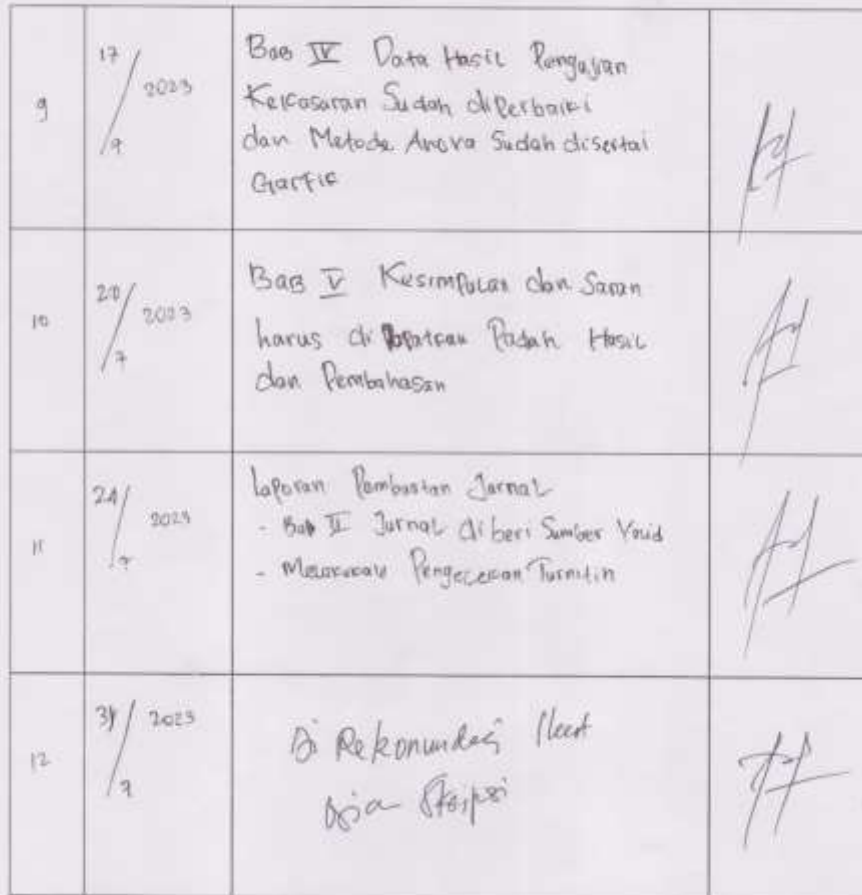 9
17/7 2023
Bab IV Data Hasil Pengujian
Kekasaran Sudah diPerbaiki
dan Metode Anova Sudah disertai
Garfik
10
20/7 2023
Bab V Kesimpulan dan Saran
harus di Padah Hasil
dan Pembahasan
11
24/7 2023
Laporan Pembuatan Jurnal
- Bab II Jurnal diberi Sumber Valid
- Melakukan Pengecekan Turnitin
12
31/7 2023
Di Rekomundasi
Skripsi